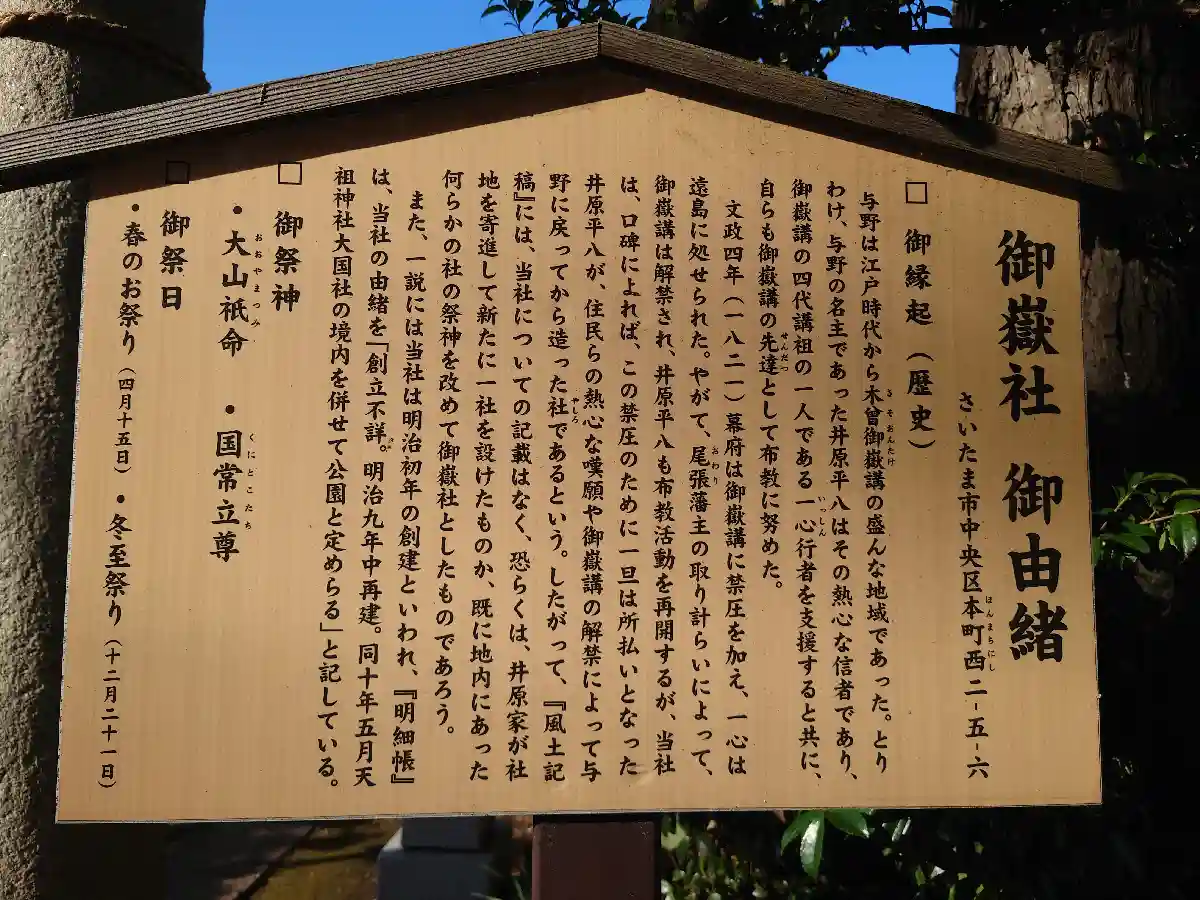 御嶽社 御由緒
さいたま市中央区本町西二-五-六
□ 御縁起（歴史）
与野は江戸時代から木曾御嶽講の盛んな地域であった。とり
わけ、与野の名主であった井原平八はその熱心な信者であり、
御嶽講の四代講祖の一人である一心行者を支援すると共に、
自らも御嶽講の先達として布教に努めた。
文政四年（一八二一）幕府は御嶽講に禁圧を加え、一心は
遠島に処せられた。やがて、尾張藩主の取り計らいによって、
御嶽講は解禁され、井原平八も布教活動を再開するが、当社
は、口碑によれば、この禁圧のために一旦は所払いとなった
井原平八が、住民らの熱心な嘆願や御嶽講の解禁によって与
野に戻ってから造った社であるという。したがって、『風土記
稿』には、当社についての記載はなく、恐らくは、井原家が社
地を寄進して新たに一社を設けたものか、既に地内にあった
何らかの社の祭神を改めて御嶽社としたものであろう。
また、一説には当社は明治初年の創建といわれ、『明細帳』
は、当社の由緒を「創立不詳。明治九年中再建。同十年五月天
祖神社大国社の境内を併せて公園と定めらる」と記している。
□ 御祭神
・大山祇命 ・国常立尊
□ 御祭日
・春のお祭り（四月十五日）・冬至祭り（十二月二十一日）
ほんまちにし
きそおんたけ
いっしん
せんだつ
おわり
やしろ
おおやまつみ
くにとこたち